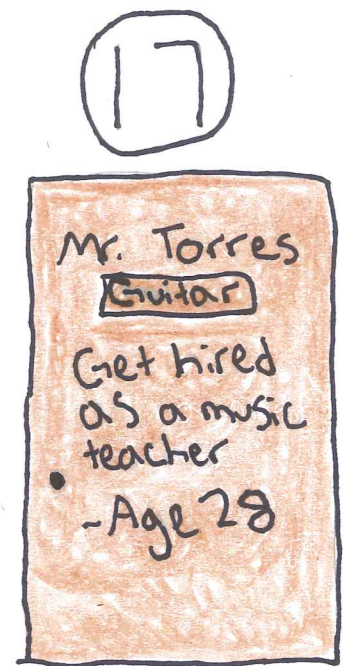 17
Mr. Torres
Guitar
Get hired
as a music
teacher
-Age 28